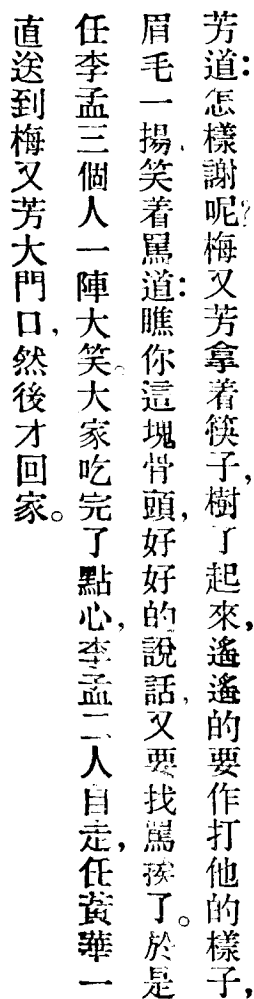 芳道：怎樣謝呢？梅又芳拿着筷子，樹了起來，遙遙的要作打他的樣子，
眉毛一揚，笑着罵道：瞧你這塊骨頭，好好的說話，又要找罵挨了。於是
任李孟三個人一陣大笑。大家吃完了點心，李孟二人自走，任黃華一
直送到梅又芳大門口，然後才回家。